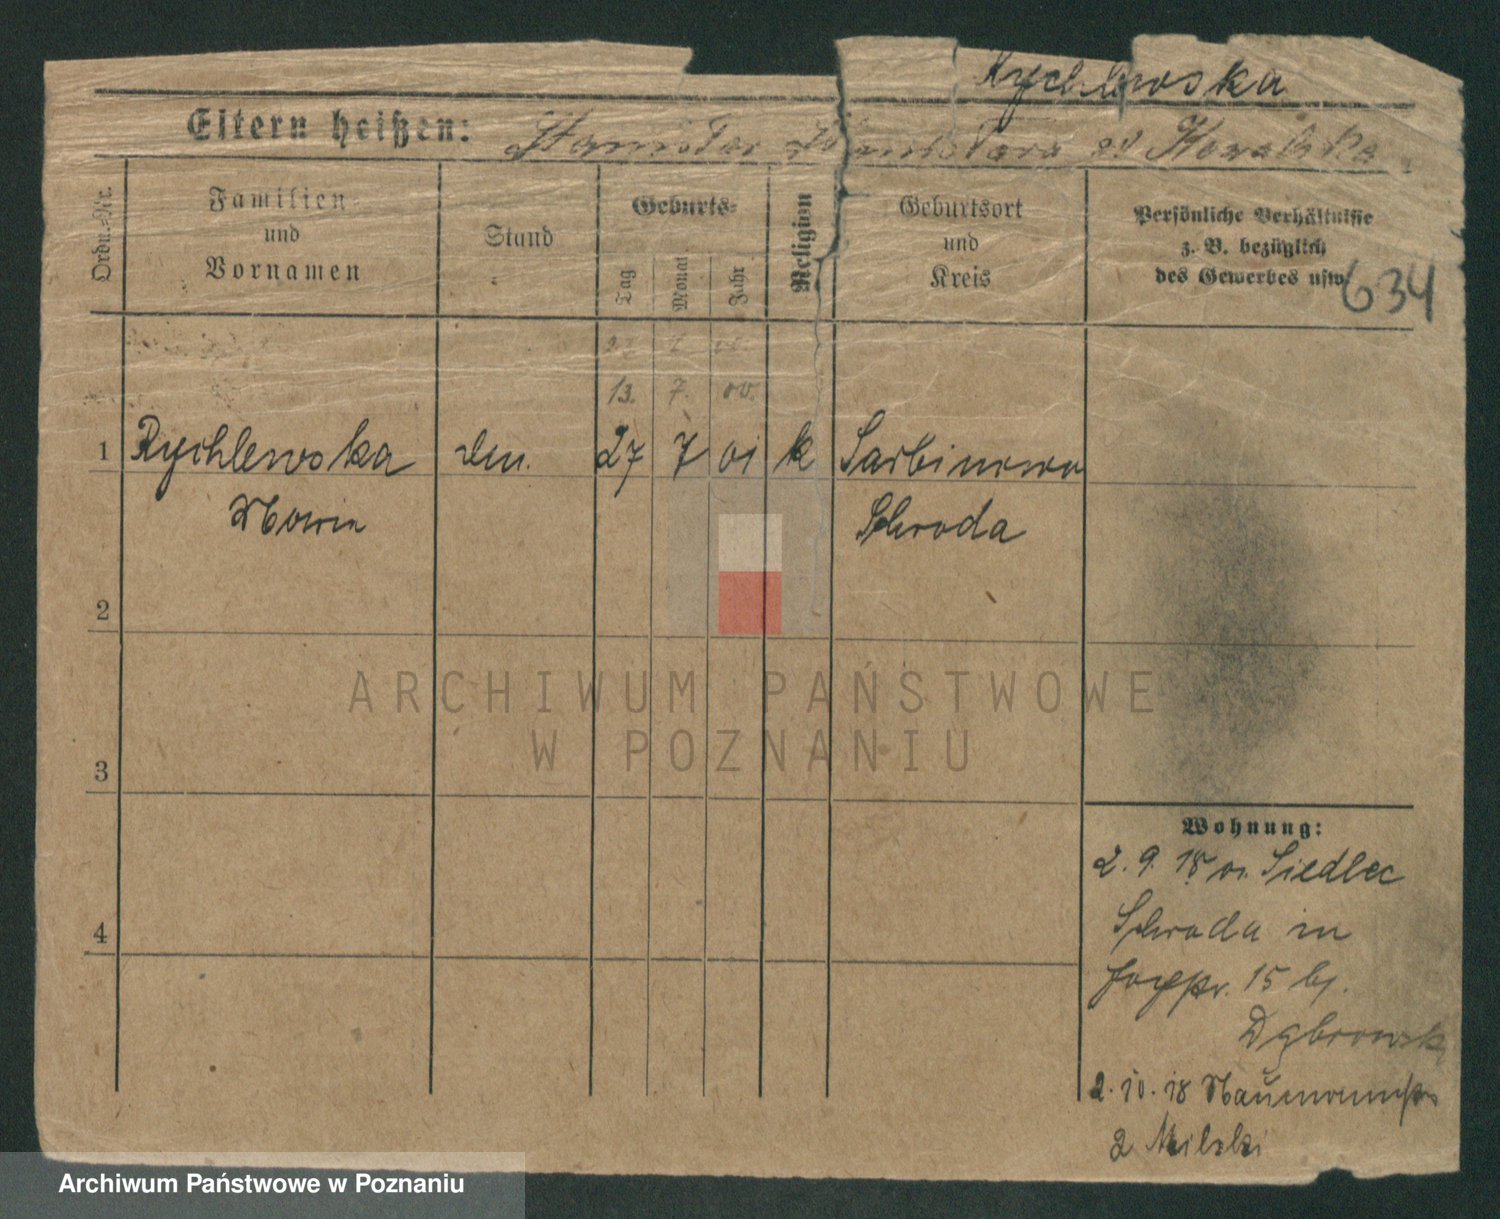 Rychlewska
Eltern heißen: Kowalska
Ordn.-Nr.
Familien-
und
Vornamen
Stand
Geburts-
Tag
Monat
Jahr
Religion
Geburtsort
und
Kreis
Persönliche Verhältnisse
z. B. bezüglich
des Gewerbes usw.
634
13. 7. 00.
1 Rychlewska 27 7 01 k Sarbinowo
Maria Schroda
2
3
4
ARCHIWUM PAŃSTWOWE
W POZNANIU
Wohnung:
2. 9. 18 Siedlec
Schroda in
15 b/.
Dąbrowsk
2. 10. 18
2 Milski
Archiwum Państwowe w Poznaniu